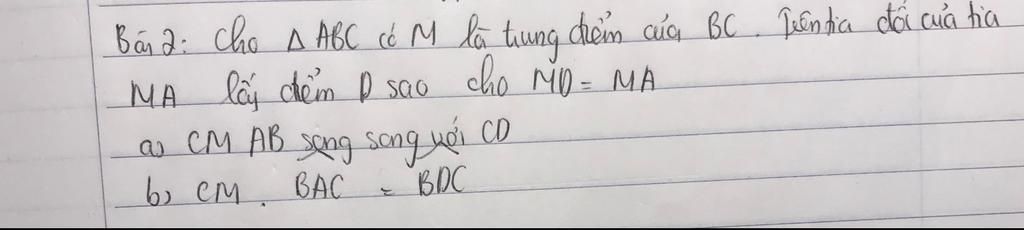 Bài 2: Cho Δ ABC có M là trung điểm của BC. Trên tia đối của tia
MA lấy điểm D sao cho MD = MA
a) CM AB song song với CD
b) CM. BAC = BDC